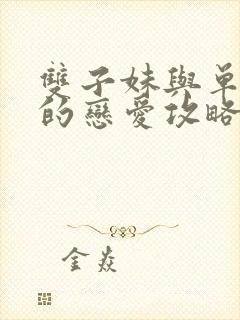 雙子妹與單
的戀愛攻略
金焱